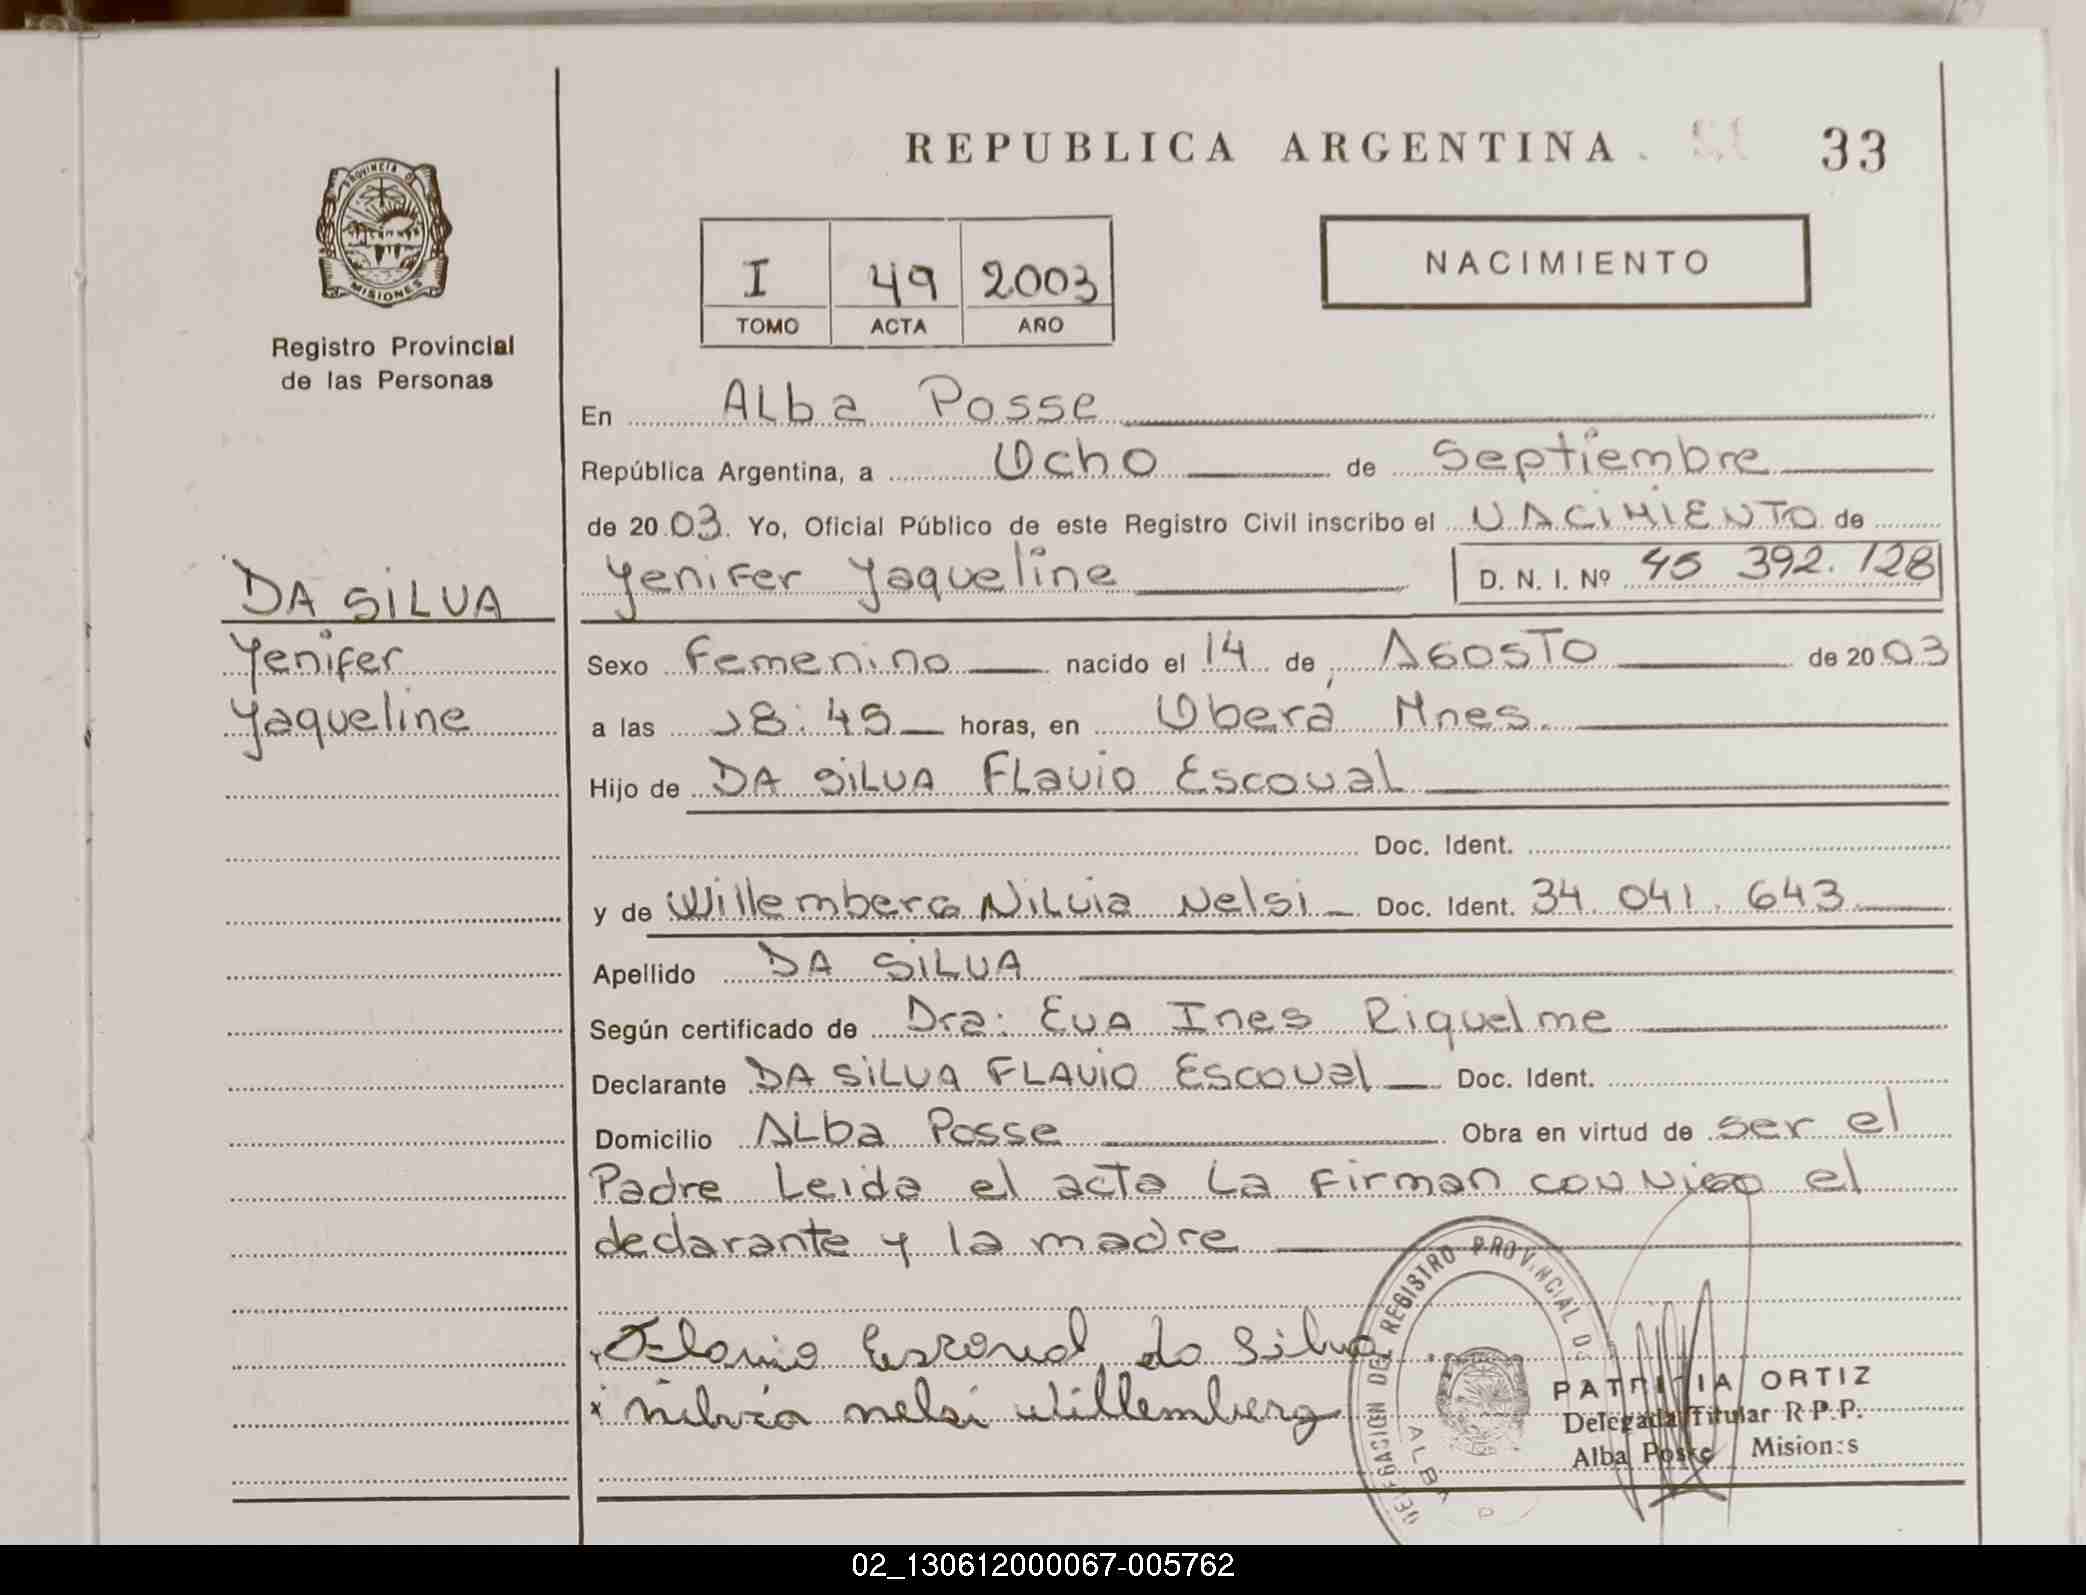 REPUBLICA ARGENTINA
33
PROVINCIA D
MISIONES
Registro Provincial
de las Personas
I 49 2003
TOMO ACTA AÑO
NACIMIENTO
En Alba Posse
República Argentina, a Ocho de Septiembre
de 2003. Yo, Oficial Público de este Registro Civil inscribo el NACIMIENTO de
Yenifer Yaqueline D. N. I. Nº 45 392.128
DA SILVA
Yenifer
Yaqueline
Sexo Femenino nacido el 14 de AGOSTO de 2003
a las 18:45 horas, en Oberá Mnes.
Hijo de DA SILVA FLavio Escoval
Doc. Ident.
y de Willemberg Nilvia Nelsi Doc. Ident. 34.041.643
Apellido DA SILVA
Según certificado de Dra: Eva Ines Riquelme
Declarante DA SILVA FLAVIO Escoval Doc. Ident.
Domicilio ALba Posse Obra en virtud de ser el
Padre Leida el acta La Firman con migo el
declarante y la madre
Flavio Escoval da Silva
x nilvia nelsi Willemberg
DELEGACION DEL REGISTRO PROVINCIAL DE
ALBA
PATRICIA ORTIZ
Delegada Titular R.P.P.
Alba Posse Misiones
02_130612000067-005762